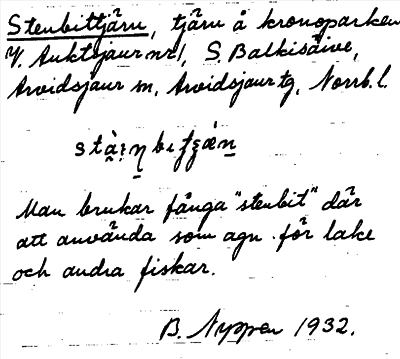 Stenbittjärn, tjärn å kronoparken
V. Auktsjaur nr 1, S. Balkisåive,
Arvidsjaur sn, Arvidsjaur tg, Norrb. l.
Man brukar fånga "stenbit" där
att använda som agn för lake
och andra fiskar.
B. Nyppen 1932.